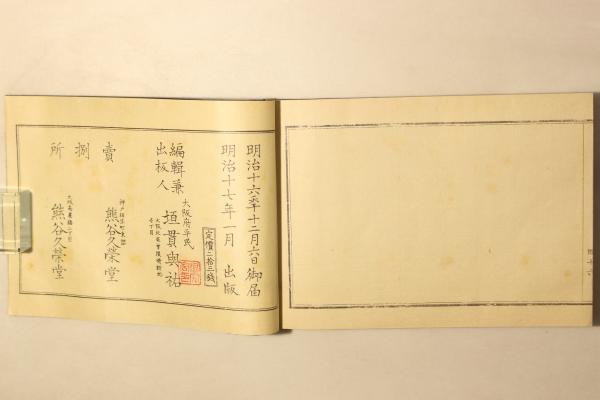 明治十六年十二月六日御届
明治十七年一月 出版
定價二拾三錢
大阪府平民
編輯兼
出板人
垣貫與祐
賣捌所
熊谷久榮堂
熊谷久榮堂